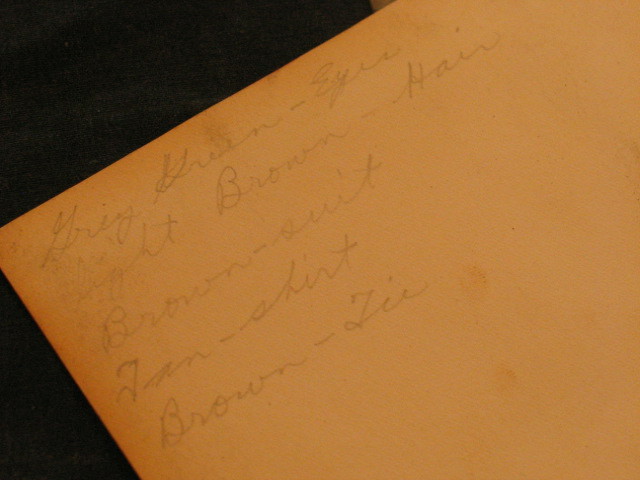 Grey Green - Eyes
Light Brown - Hair
Brown - suit
Tan - shirt
Brown - Tie